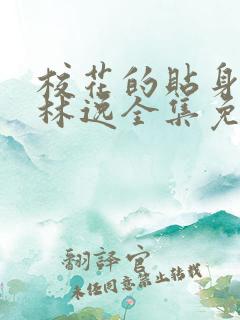 校花的贴身
林逸全集免
翻译官
未经同意禁止转载